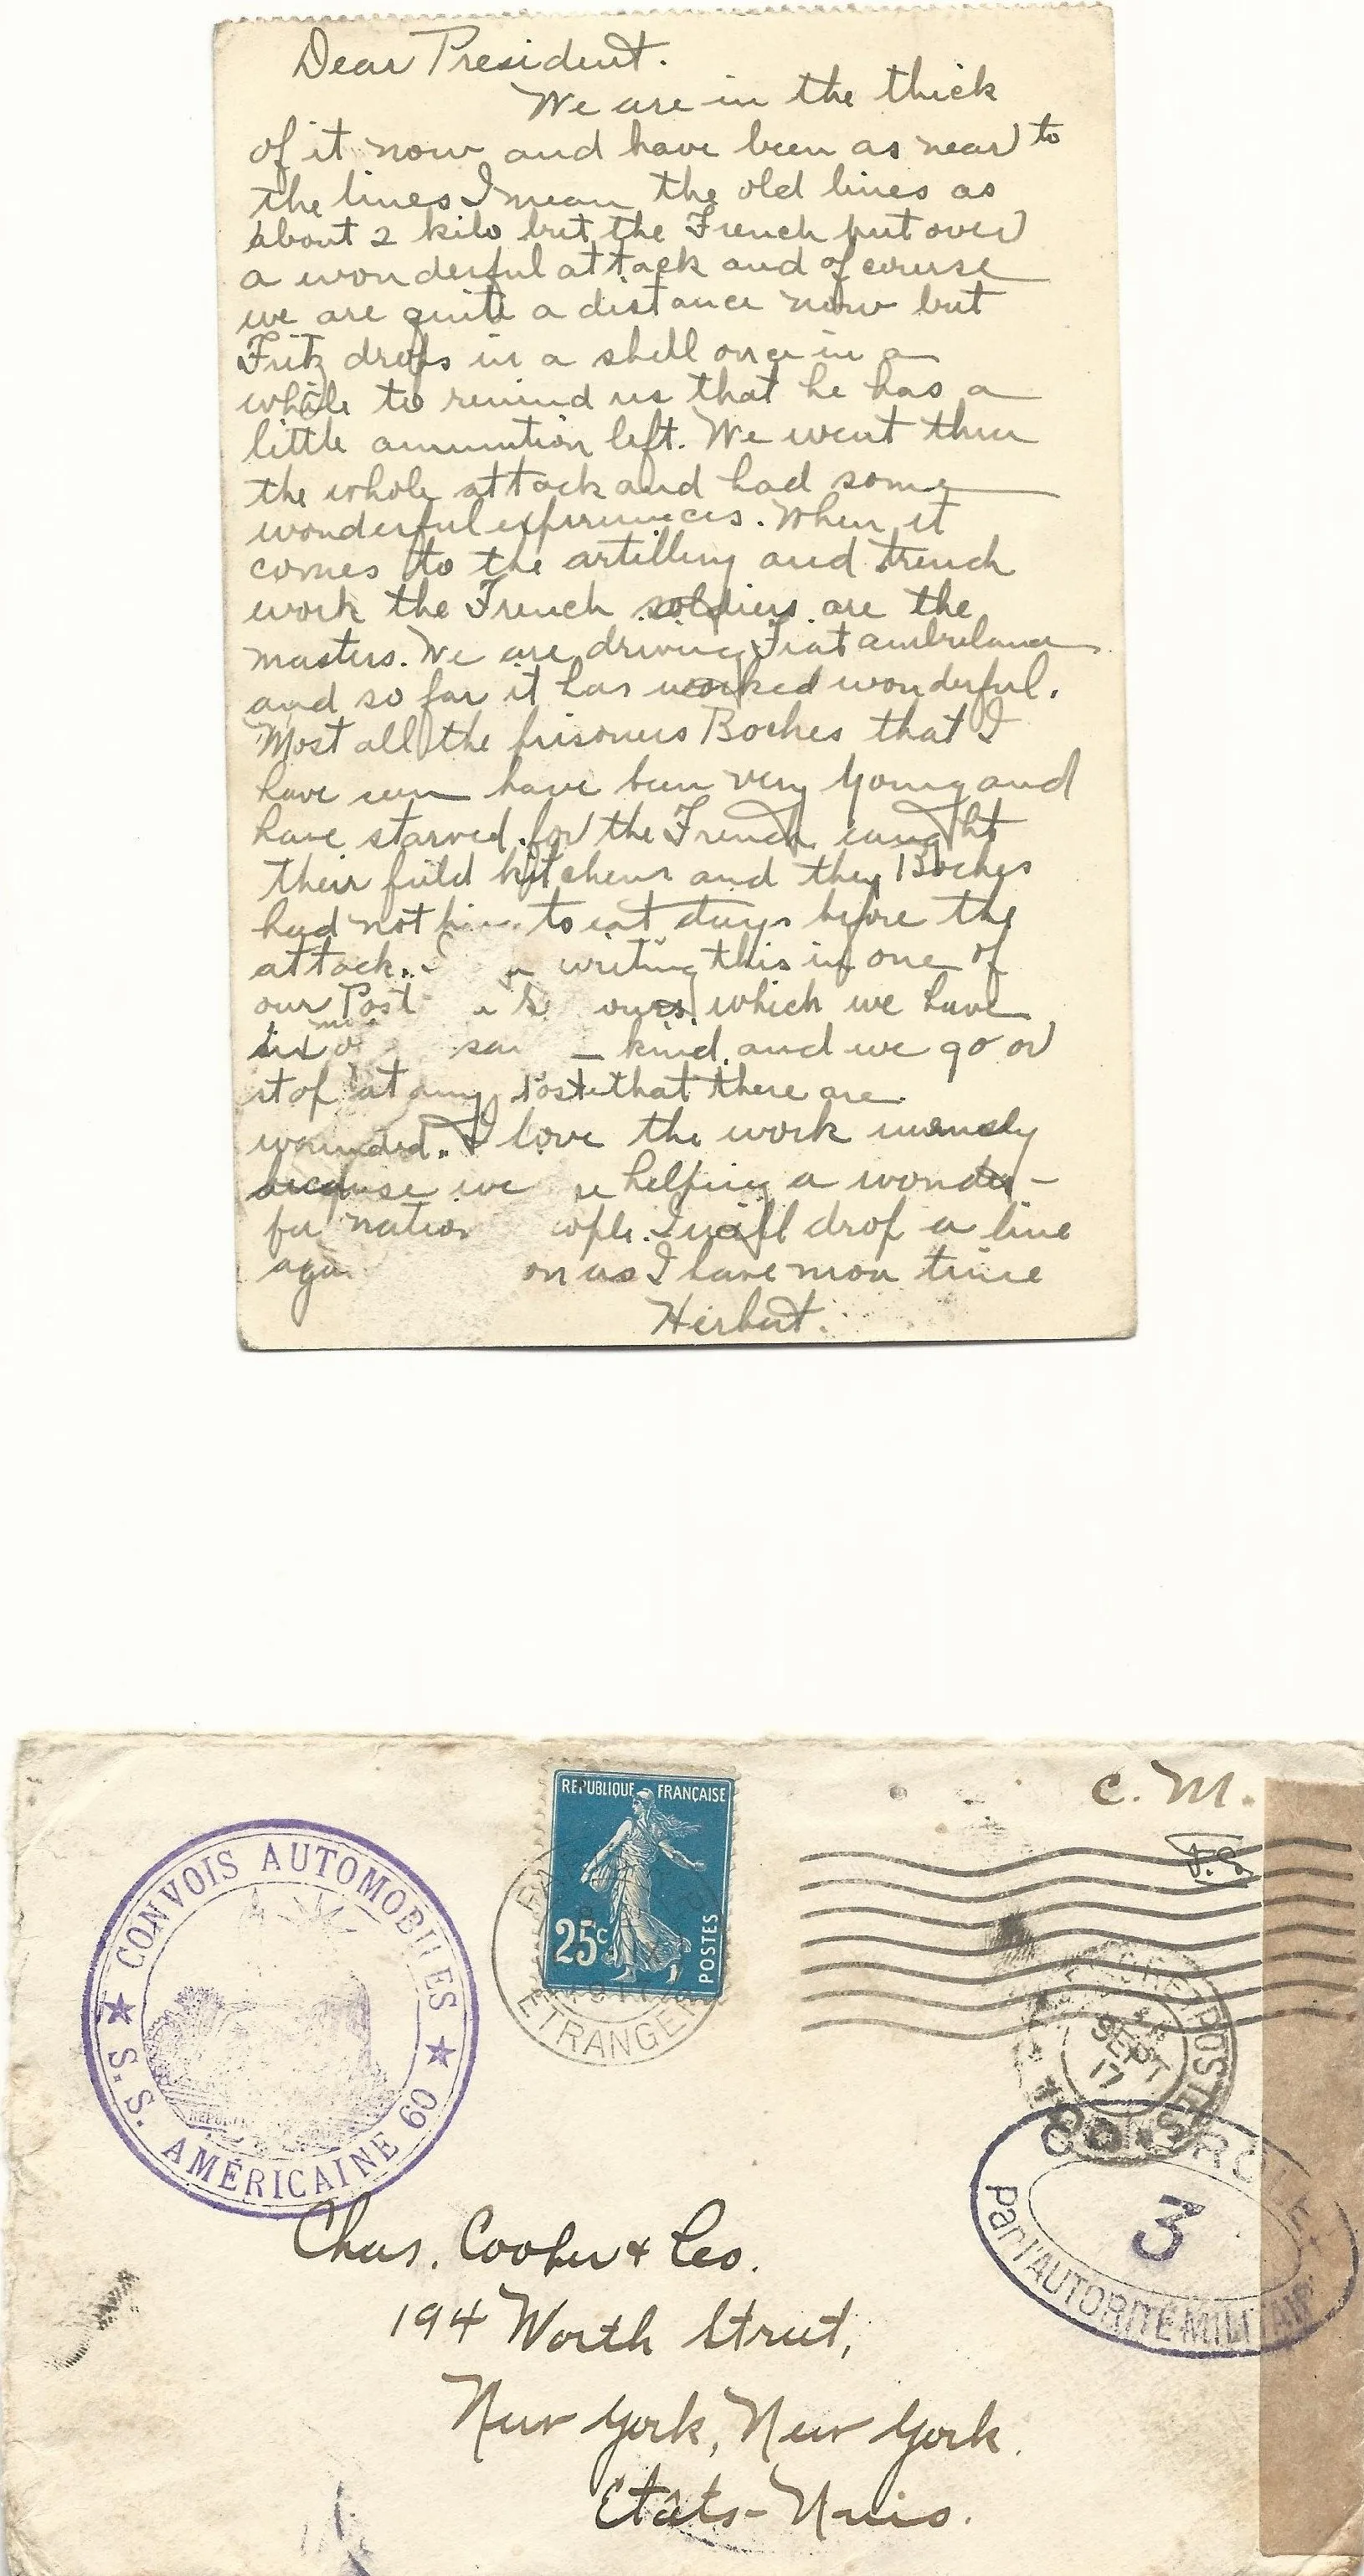 Dear President.
We are in the thick
of it now and have been as near to
the lines I mean the old lines as
about 2 kilo but the French put over
a wonderful attack and of course
we are quite a distance now but
Fritz drops in a shell once in a
while to remind us that he has a
little ammution left. We went thru
the whole attack and had some
wonderful experiences. When it
comes to the artillery and trench
work the French soldiers are the
masters. We are driving Fiat ambulances
and so far it has worked wonderful.
Most all the prisoners Boches that I
have seen have been very young and
have starved for the French caught
their field kitchens and they Boches
had not to eat days before the
attack. writing this in one of
our Post ours which we have
six kind and we go or
stop at any Poste that there are
wounded. I love the work
because we helping a wonder-
ful I will drop a line
on as I have more time
Herbert.
REPUBLIQUE FRANÇAISE
25c
POSTES
ETRANGER
C. M.
CONVOIS AUTOMOBILES
S. S. AMÉRICAINE 60
SEPT
17
CONTROLE
3
Par l'AUTORITÉ MILITAIRE
Chas. Cooper & Co.
194 Worth Street,
New York, New York.
Etâts-Unis.